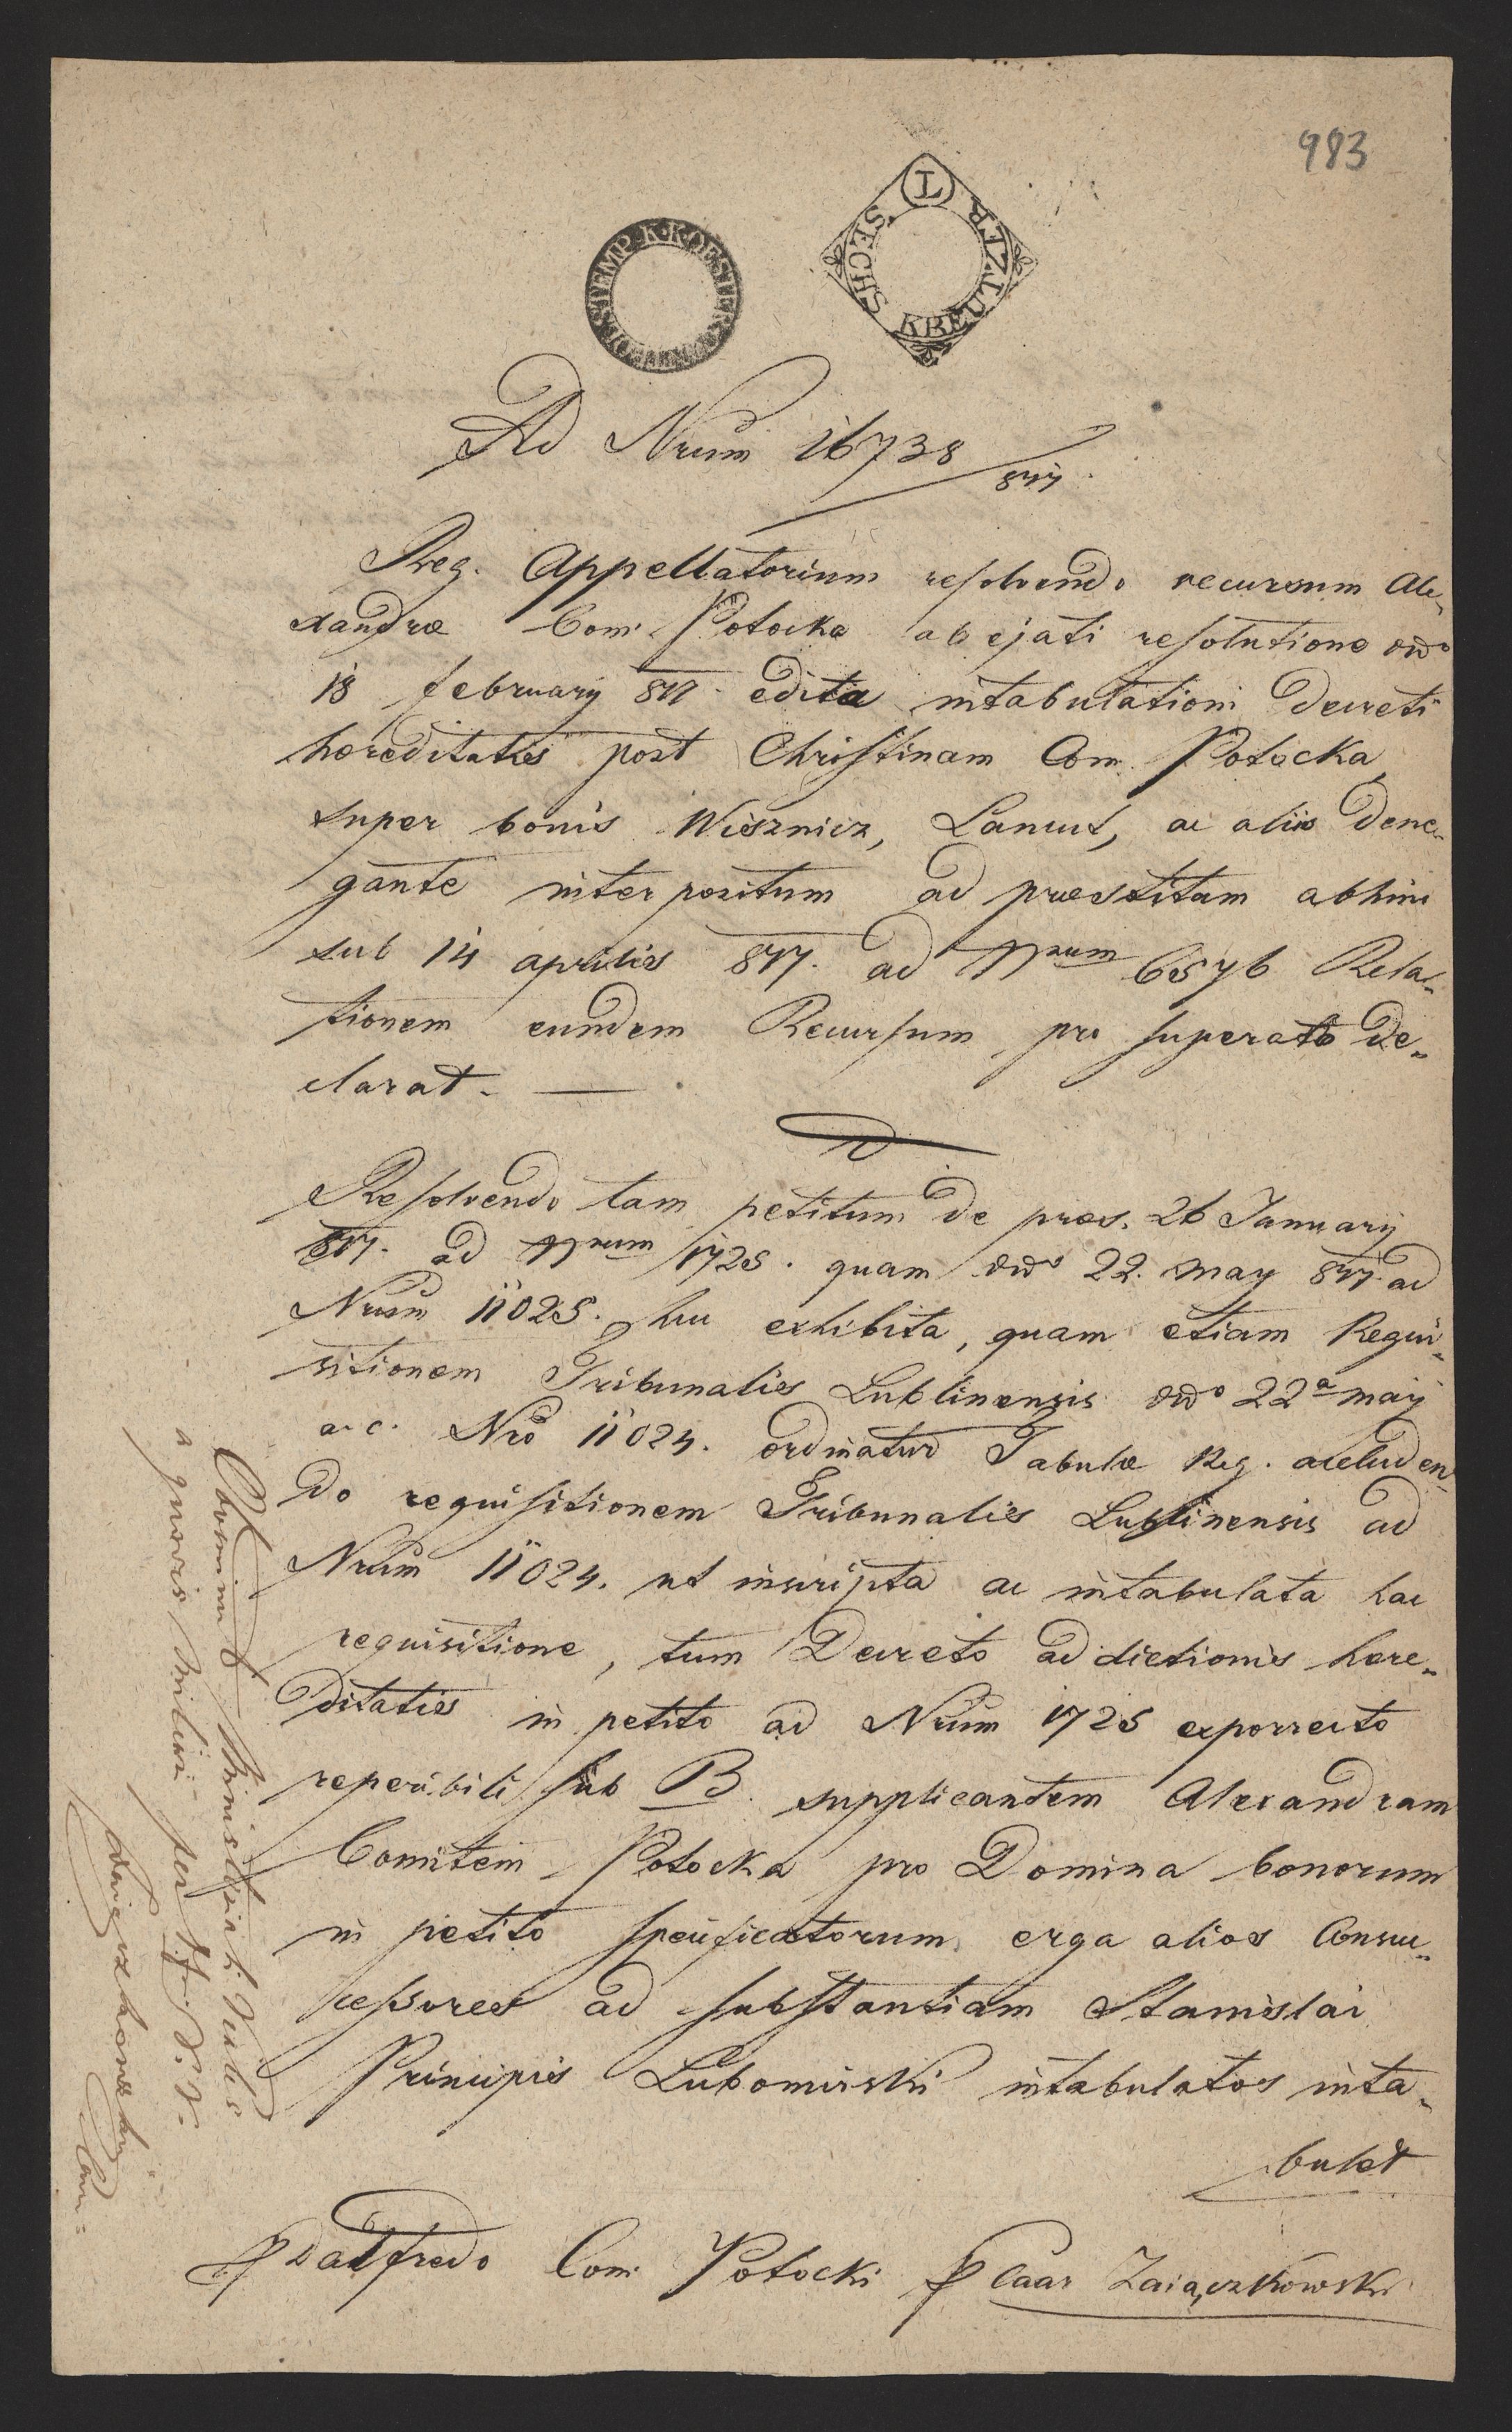 983
SECHS KREUTZER
Ad Nrum 16738/817.
Reg. Appellatorium resolvendo recursum Ale„
xandræ Com. Potocka ab ejati resolutione ddto
18 february 817. edita intabulationi Decreti
hæreditatis post Christinam Com. Potocka
super bonis Wisznicz, Lancut, ac aliis dene„
gante interpositum ad præstitam abhinc
sub 14 aprilis 817. ad Nrum 6576 Rela„
tionem eundem Recursum pro superato de„
clarat. —
Resolvendo tam petitum de præs. 26 January
817. ad Nrum 1725. quam ddto 22. may 817. ad
Nrum 11025. huc exhibita, quam etiam Requi„
sitionem Tribunalis Lublinensis ddto 22a may
a. c. Nro 11024. ordinatur Tabulæ Reg. accluden„
do requisitionem Tribunalis Lublinensis ad
Nrum 11024. ut inscripta ac intabulata hac
requisitione, tum Decreto addictionis hære„
ditatis in petito ad Nrum 1725 exporrecto
reperibili sub B. supplicantem Alexandram
Comitem Potocka pro Domina bonorum
in petito specificatorum erga alios Consuc„
cessores ad substantiam Stanislai
Principis Lubomirski intabulatos inta„
bulet
D alfredo Com. Potocki Caar Zaiączkowski